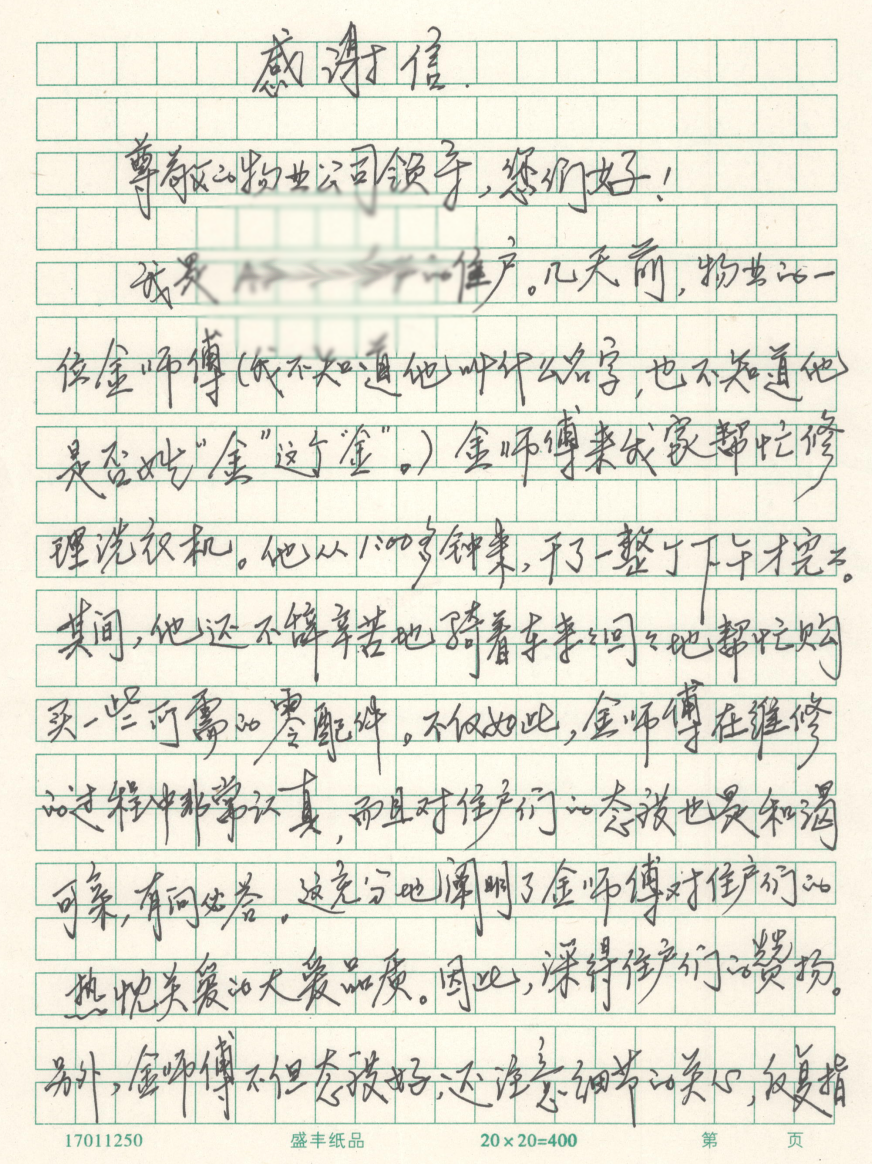 感谢信.
尊敬的物业公司领导,您们好!
我是 的住户。几天前,物业的一
位金师傅(我不知道他叫什么名字,也不知道他
是否姓“金”这个“金”。)金师傅来我家帮忙修
理洗衣机。他从1:00多钟来,干了一整个下午才完工。
其间,他还不辞辛苦地骑着车来来回回地帮忙购
买一些所需的零配件。不仅如此,金师傅在维修
的过程中非常认真,而且对住户们的态度也是和蔼
可亲,有问必答。这充分地阐明了金师傅对住户们的
热忱关爱的大爱品质。因此,深得住户们的赞扬。
另外,金师傅不但态度好,还注意细节的关心,反复指
17011250 盛丰纸品 20×20=400 第 页